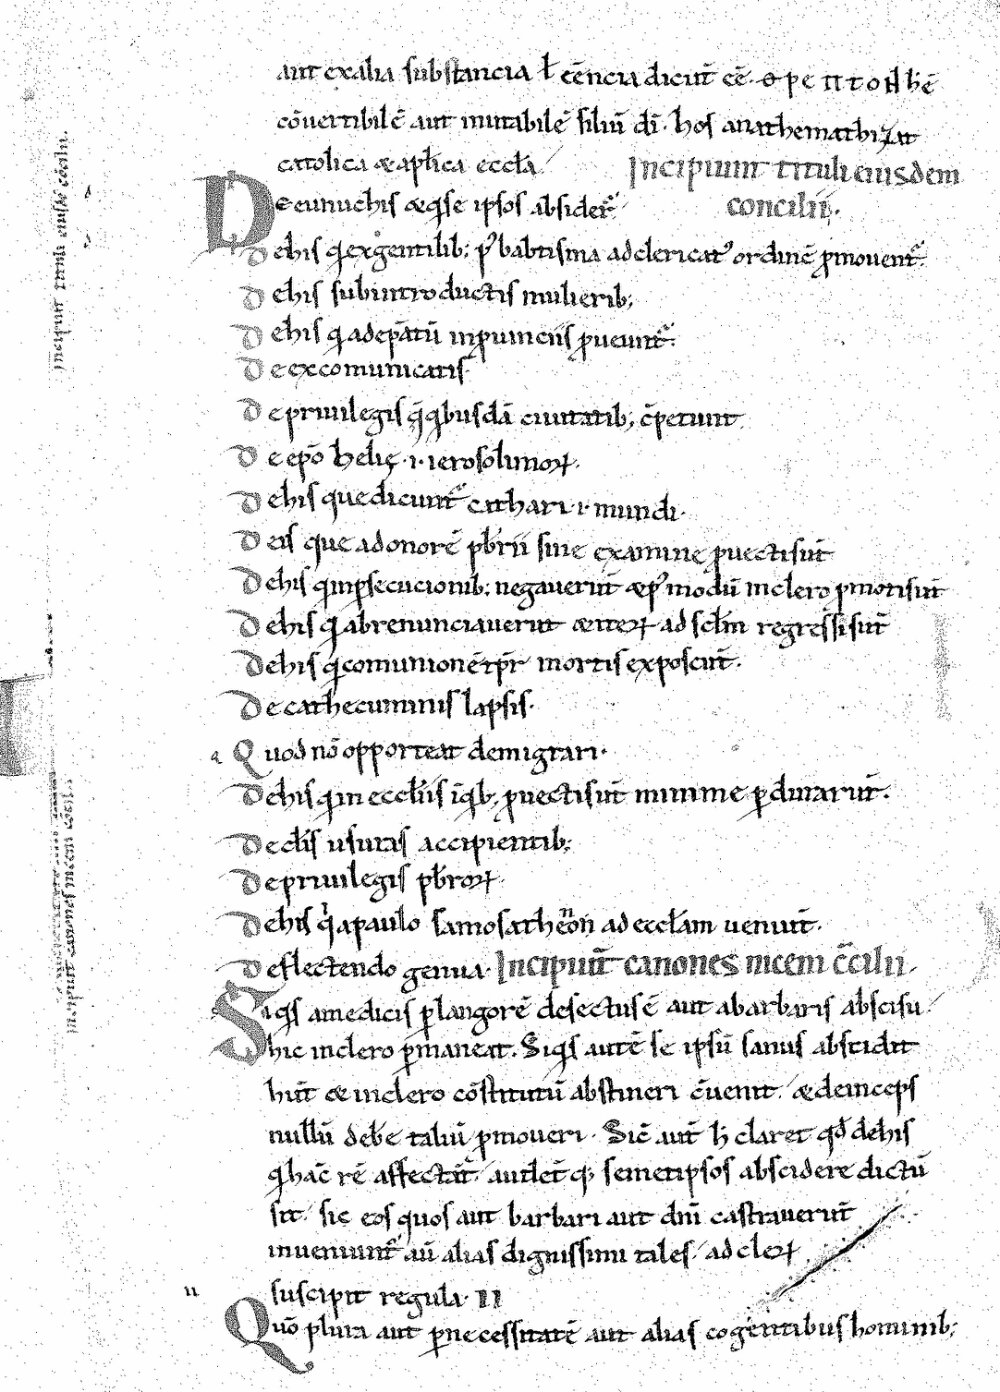 aut exalia substancia ł eēncia dicuт̄ eē. o p e π τ o ł h̄ē
cōuertibilē aut mutabilē filiū dī. hos anathemathizat
catolica & apłica eccła Incipiunt tituli eiusdem
De eunuchis & q̇ se ipsos absider̄ concilii.
De his q̇ ex gentilib; p' babtisma ad clericat' ordinē p̄mouent̄
De his subintroductis mulierib;
De his q̇ ad ep̄atū inprouinciis p̄ueunt̄.
De excomunicatis.
De priuilegiis q̄ q̇busdā ciuitatib; c̄petunt
De ep̄o helię .i. ierosolimoꝝ.
De his que dicunt̄ cathari .i. mundi.
De eis que ad onorē pb̄rii sine examine p̄uecti suт̄
De his q̇ inp̄secucionib; negaueruт̄ & p' modū inclero p̄moti suт̄
De his q̇ abrenunciauerunt & iteꝝ ad sc̄łm regressi suт̄
De his q̇ comunionē tp̄r mortis exposcuт̄.
De cathecuminis lapsis.
Quod nō opporteat demigrari.
De his q̇ in ecclīis q̇b; p̄uecti suт̄ minime p̄duraruт̄.
De cłis usuras accipientib;
De priuilegis pb̄roꝝ.
De his q̇ a paulo samosatheon ad eccłam uenuт̄.
De flectendo genua. Incipiuт̄ canones niceni c̄cilii.
Siq̇s a medicis p̄ langorē desectus ē aut a barbaris abscisu
hic inclero p̄maneat. Siq̇s autē se ipsū sanus abscidit
huт̄ & inclero cōstitutū abstineri c̄uenit. & deinceps
nullū debe taliū p̄moueri. Sic̄ auт̄ h̄ claret qd̄ de his
q̇ hac̄ rē affectaт̄ audeт̄q; semetipsos abscidere dictū
sit. sic eos quos aut barbari aut dn̄i castraueruт̄
inueniunt̄ aū alias dignissimi tales ad cleꝝ
suscipit regula. II
Quō plura aut p̄ necessitatē aut alias cogentibus hominib;
incipiunt tituli eiusdē cōcilii
incipiunt canones niceni cōcil.